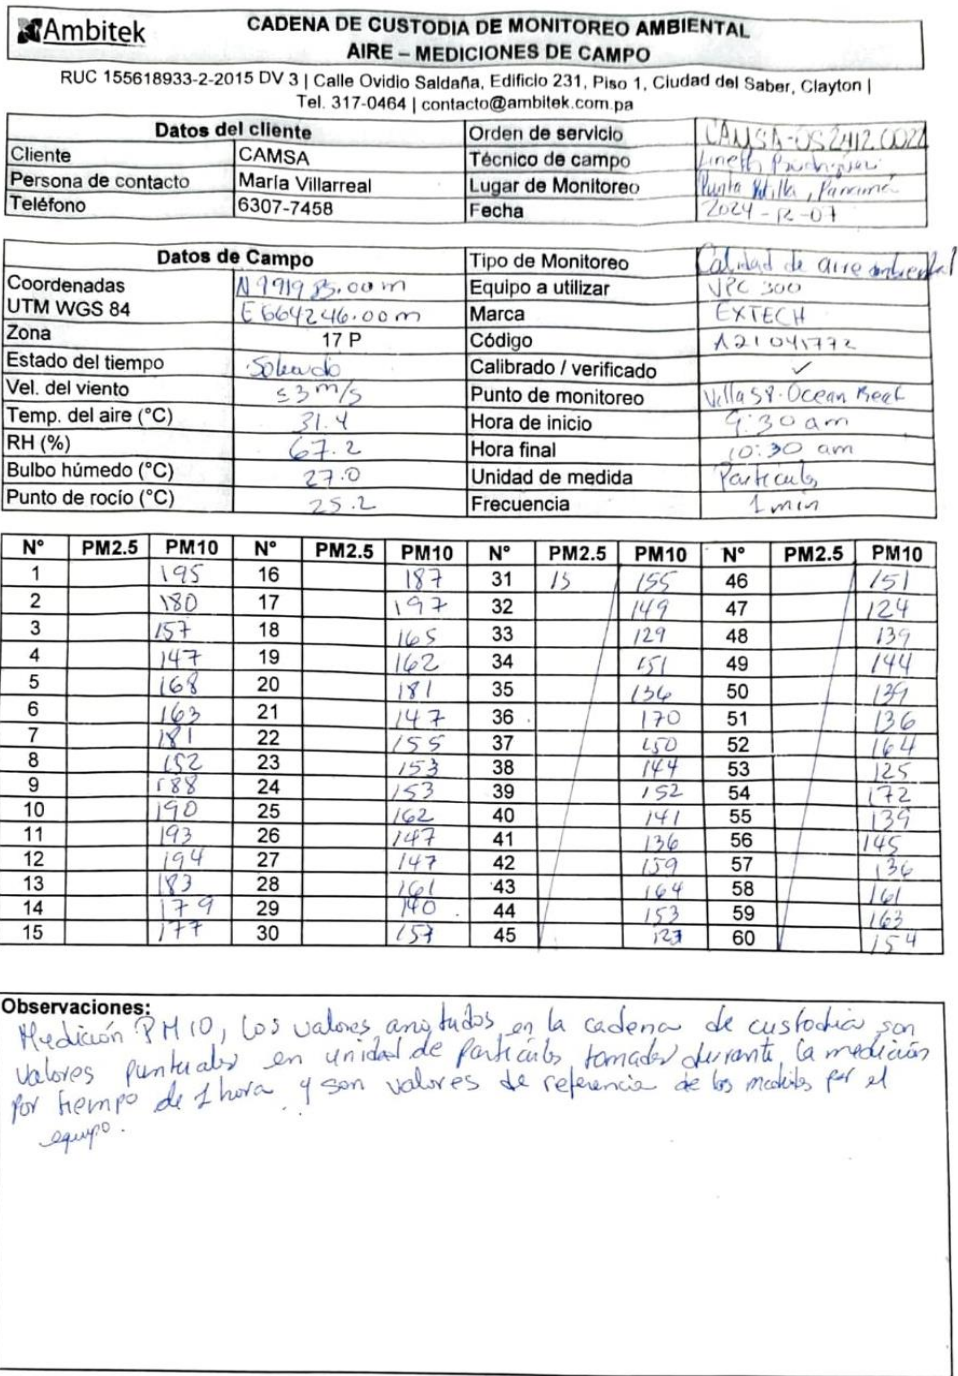 Ambitek
CADENA DE CUSTODIA DE MONITOREO AMBIENTAL
AIRE – MEDICIONES DE CAMPO
RUC 155618933-2-2015 DV 3 | Calle Ovidio Saldaña, Edificio 231, Piso 1, Ciudad del Saber, Clayton |
Tel. 317-0464 | contacto@ambitek.com.pa
Datos del cliente Orden de servicio CAMSA-OS2412.0022
Cliente CAMSA Técnico de campo Lineth Rodríguez
Persona de contacto María Villarreal Lugar de Monitoreo Punta Patilla, Panamá
Teléfono 6307-7458 Fecha 2024-12-07
Datos de Campo Tipo de Monitoreo Calidad de aire ambiental
Coordenadas N 991985.00m Equipo a utilizar VPC 300
UTM WGS 84 E 664246.00m Marca EXTECH
Zona 17 P Código A21041772
Estado del tiempo Soleado Calibrado / verificado ✓
Vel. del viento ≤3 m/s Punto de monitoreo Villa 58. Ocean Reef
Temp. del aire (°C) 31.4 Hora de inicio 9:30 am
RH (%) 67.2 Hora final 10:30 am
Bulbo húmedo (°C) 27.0 Unidad de medida Partículas
Punto de rocío (°C) 25.2 Frecuencia 1 min
N° PM2.5 PM10 N° PM2.5 PM10 N° PM2.5 PM10 N° PM2.5 PM10
1 195 16 187 31 15 155 46 151
2 180 17 197 32 149 47 124
3 157 18 165 33 129 48 139
4 147 19 162 34 151 49 144
5 168 20 181 35 136 50 139
6 163 21 147 36 170 51 136
7 181 22 155 37 150 52 164
8 152 23 153 38 144 53 125
9 188 24 153 39 152 54 172
10 190 25 162 40 141 55 139
11 193 26 147 41 136 56 145
12 194 27 147 42 159 57 136
13 183 28 161 43 164 58 161
14 179 29 140 44 153 59 163
15 177 30 157 45 123 60 154
Observaciones:
Medición PM10, los valores anotados en la cadena de custodia son
valores puntuales en unidad de partículas tomados durante la medición
por tiempo de 1 hora y son valores de referencia de los medidos por el
equipo.